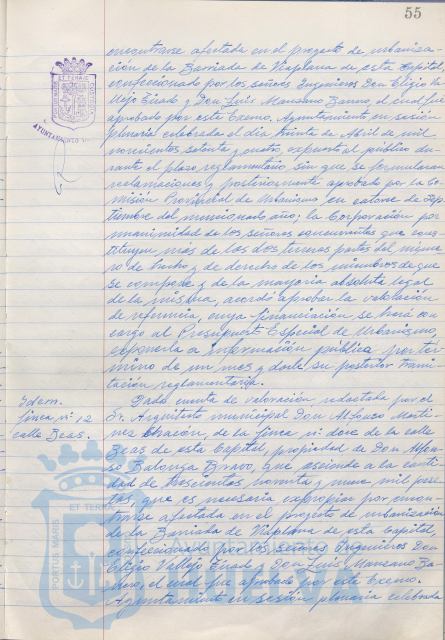 55
encontrarse afectada en el proyecto de urbaniza-
ción de la Barriada de Viaplana de esta Capital,
confeccionado por los señores Ingenieros Don Eligio Va
llejo Erado y Don Luis Manzano Banno, el cual fue
aprobado por este Excmo. Ayuntamiento en sesión
plenaria celebrada el día treinta de Abril de mil
novecientos setenta y cuatro, expuesto al público du-
rante el plazo reglamentario, sin que se formularan
reclamaciones y posteriormente aprobado por la Co
misión Provincial de Urbanismo en catorce de Sep-
tiembre del mencionado año; la Corporación por
unanimidad de los señores concurrentes que cons-
tituyen más de las dos terceras partes del núme
ro de hecho y de derecho de los miembros de que
se compone y de la mayoría absoluta legal
de la misma, acordó aprobar la valoración
de referencia, cuya financiación se hará con
cargo al Presupuesto Especial de Urbanismo,
exponerla a información pública por tér-
mino de un mes y darle su posterior trami-
tación reglamentaria.
Idem.
finca nº 12
calle Beas.
Dada cuenta de valoración redactada por el
Sr. Arquitecto municipal Don Alfonso Martí-
nez Chacón, de la finca nº doce de la calle
Beas de esta Capital, propiedad de Don Alfon-
so Bravo, que asciende a la canti
dad de trescientas noventa y nueve mil pese
tas, que es necesaria expropiar por encon-
trarse afectada en el proyecto de urbanización
de la Barriada de Viaplana de esta Capital,
confeccionado por los señores Ingenieros Don
Eligio Vallejo Erado y Don Luis Manzano Ba-
nno, el cual fue aprobado por este Excmo.
Ayuntamiento en sesión plenaria celebrada
ET TERRAE
PORTUS MARIS
AYUNTAMIENTO